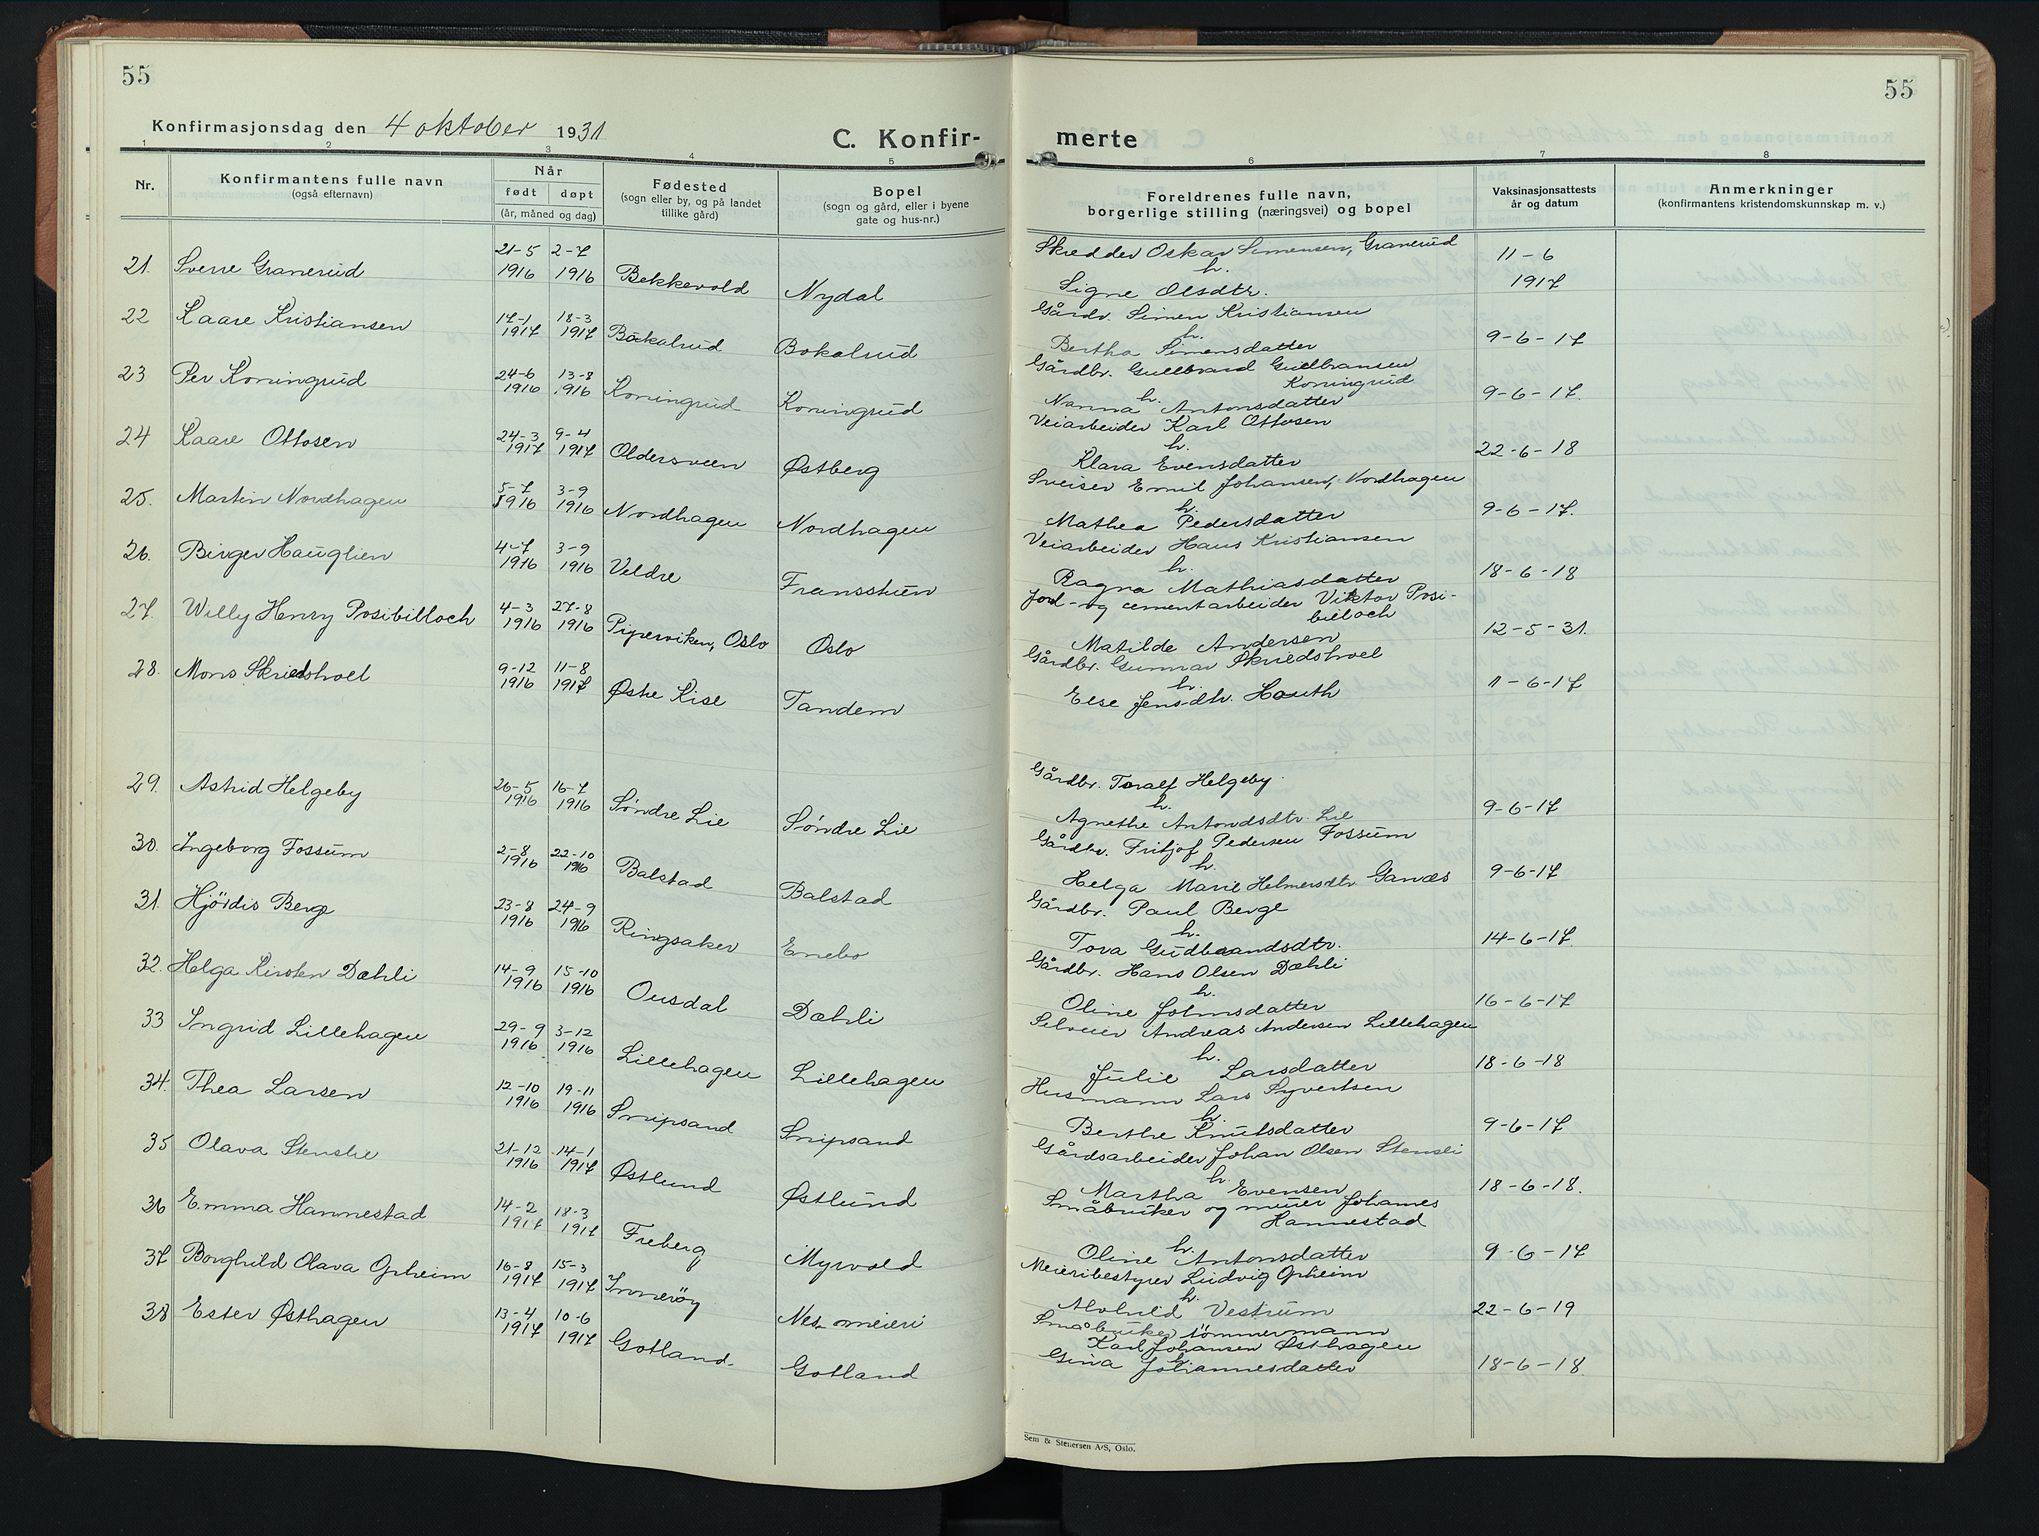 55
55
Konfirmasjonsdag den 4 oktober 1931
C. Konfir-
merte
1 2 3 4 5 6 7 8
Nr.
Konfirmantens fulle navn
(også efternavn)
Når
født døpt
(år, måned og dag)
Fødested
(sogn eller by, og på landet
tillike gård)
Bopel
(sogn og gård, eller i byene
gate og hus-nr.)
Foreldrenes fulle navn,
borgerlige stilling (næringsvei) og bopel
Vaksinasjonsattests
år og datum
Anmerkninger
(konfirmantens kristendomskunnskap m. v.)
21. Sverre Granerud 21-5 1916 2-7 1916 Bekkevold Nydal
Skredder Oskar Simensen, Granerud
h.
Signe Olsdtr. 11-6 1917
22 Kaare Kristiansen 17-1 1917 18-3 1917 Bokalrud Bokalrud
Gårdv. Simen Kristiansen
h.
Bertha Simensdatter 9-6-17
23 Per Koningrud 24-6 1916 13-8 1916 Koningrud Koningrud
Gårdbr. Gullbrand Gullbransen
Koningrud
h.
Nanna Antonsdatter 9-6-17.
24 Kaare Ottosen 24-3 1917 9-4 1917 Oldersveen Østberg
Veiarbeider Karl Ottosen
h.
Klara Evensdatter 22-6-18
25. Martin Nordhagen 5-7 1916 3-9 1916 Nordhagen Nordhagen
Sveiser Emil Johansen, Nordhagen
h.
Mathea Pedersdatter 9-6-17.
26. Birger Hauglien 4-7 1916 3-9 1916 Veldre Fransstuen
Veiarbeider Hans Kristiansen
h.
Ragna Mathiasdatter 18-6-18
27. Willy Henry Posibilloch 4-3 1916 27-8 1916 Piperviken, Oslo Oslo
Jord- og cementarbeider Viktor Posi-
billoch
Matilde Andersen 12-5-31.
28. Mons Skredshol 9-12 1916 11-8 1917 Østre Kise Tandem
Gårdbr. Gunnar Skredshol
h.
Else Jensdtr. Hauth 11-6-17
29. Astrid Helgeby 26-5 1916 16-7 1916 Søndre Lie Søndre Lie
Gårdbr. Toralf Helgeby.
h.
Agnethe Antonsdtr. Lie 9-6-17
30. Ingeborg Fossum 2-8 1916 22-10 1916 Balstad Balstad
Gårdbr. Fritjof Pedersen Fossum
h.
Helga Marie Helmersdtr. Ganæs 9-6-17
31. Hjørdis Berge 23-8 1916 24-9 1916 Ringsaker Enebo
Gårdbr. Paul Berge
h.
Tora Gudbrandsdtr. 14-6-17
32. Helga Kirsten Dæhli 14-9 1916 15-10 1916 Ousdal Dæhli
Gårdbr. Hans Olsen Dæhli
h.
Oline Johnsdatter 16-6-17
33 Ingrid Lillehagen 29-9 1916 3-12 1916 Lillehagen Lillehagen
Selveier Andreas Andersen Lillehagen
h.
Julie Larsdatter 18-6-18
34. Thea Larsen 12-10 1916 19-11 1916 Snipsand Snipsand
Husmann Lars Syvertsen
h.
Berthe Knutsdatter 9-6-17
35 Olava Stenslie 21-12 1916 14-1 1917 Østlund Østlund
Gårdsarbeider Johan Olsen Stensli
h.
Martha Evensen 18-6-18.
36 Emma Hannestad 14-2 1917 18-3 1917 Freberg Myrvold
Småbruker og murer Johannes
Hannestad
h.
Oline Antonsdatter 9-6-17
37 Borghild Olava Opheim 16-8 1917 15-3 1917 Innerøy Nes meieri
Meieribestyrer Ludvig Opheim
h.
Alvhild Vestrum 22-6-19
38 Ester Østhagen 13-4 1917 10-6 1917 Gotland. Gotland
Småbruker tømmermann
Karl Johansen Østhagen
h.
Gina Johannesdatter 18-6-18.
Sem & Stenersen A/S, Oslo.